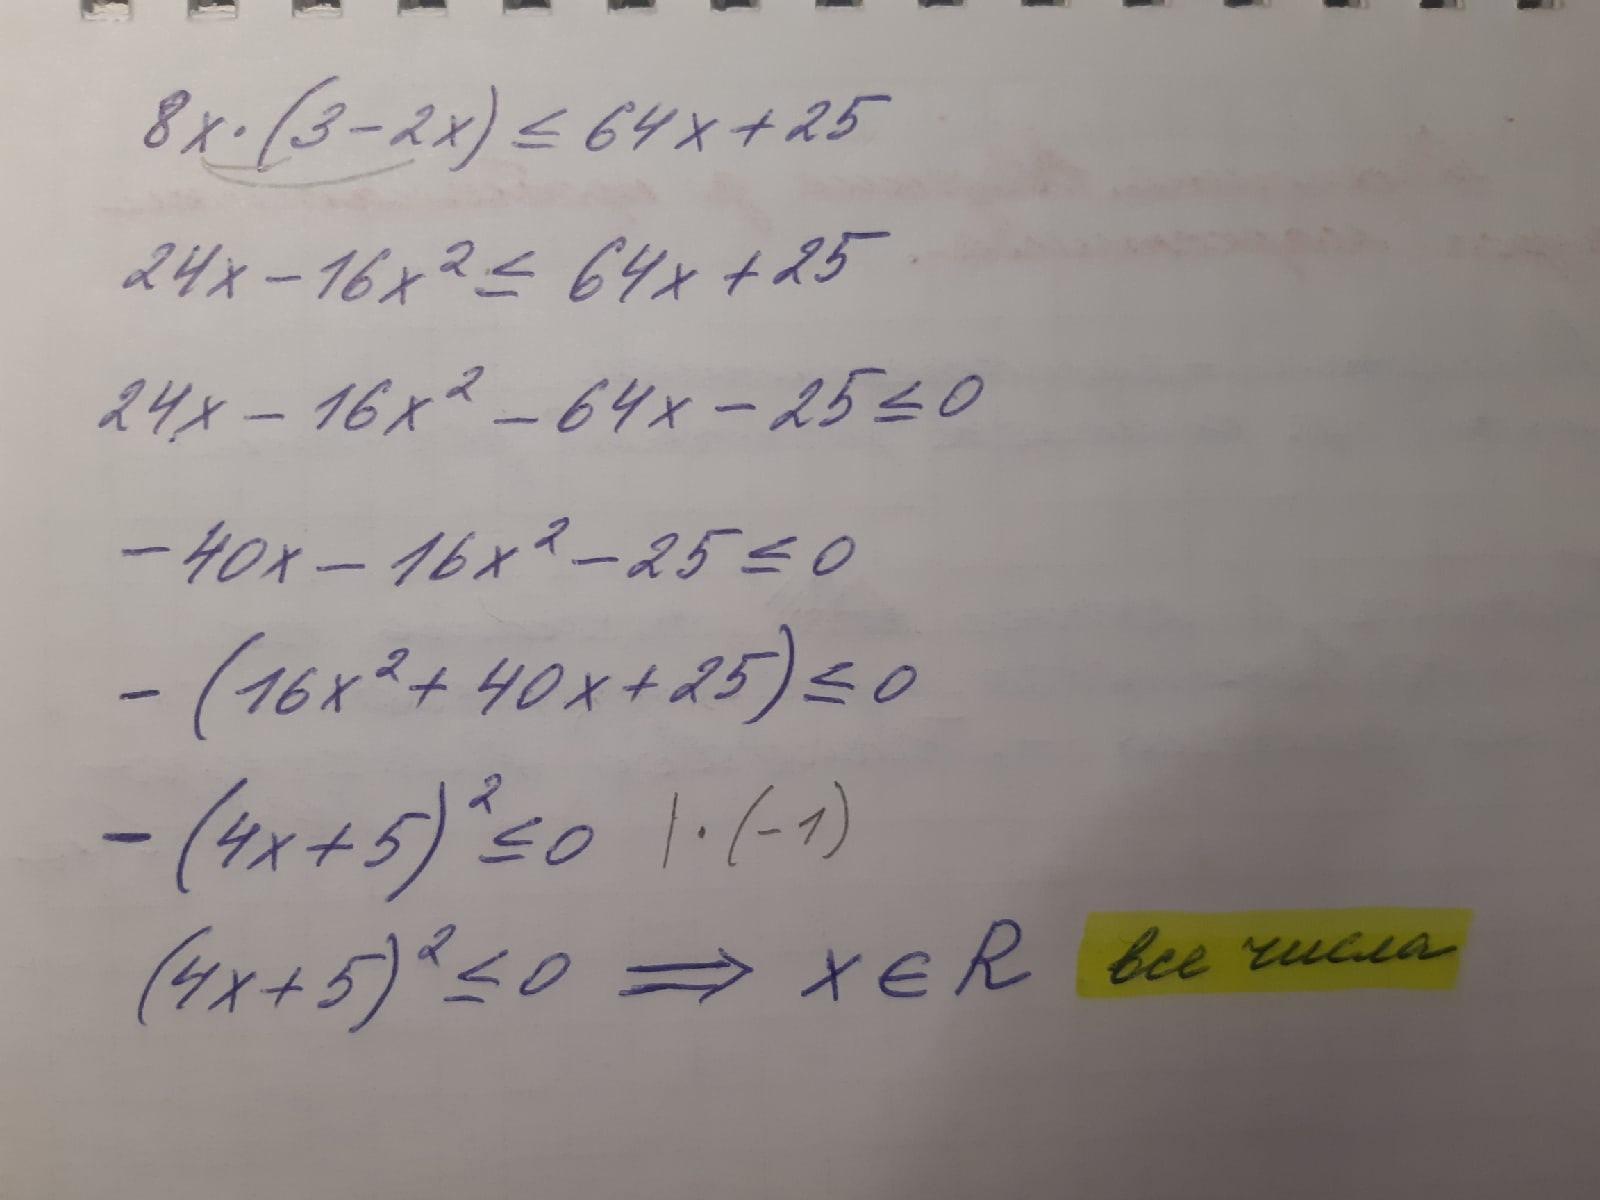 8x·(3-2x) ≤ 64x+25
24x-16x² ≤ 64x+25
24x-16x²-64x-25 ≤ 0
-40x-16x²-25 ≤ 0
-(16x²+40x+25) ≤ 0
-(4x+5)² ≤ 0 |·(-1)
(4x+5)² ≤ 0 ⟹ x∈R все числа